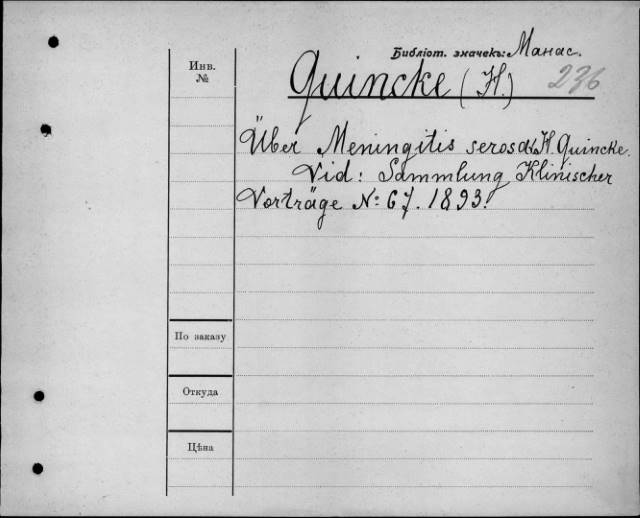 Библіот. значекъ: Манас.
Инв.
№
Quincke (H.) 236
Über Meningitis serosa H. Quincke.
Vid: Sammlung Klinischer
Vorträge №: 67. 1893.
По заказу
Откуда
Цѣна